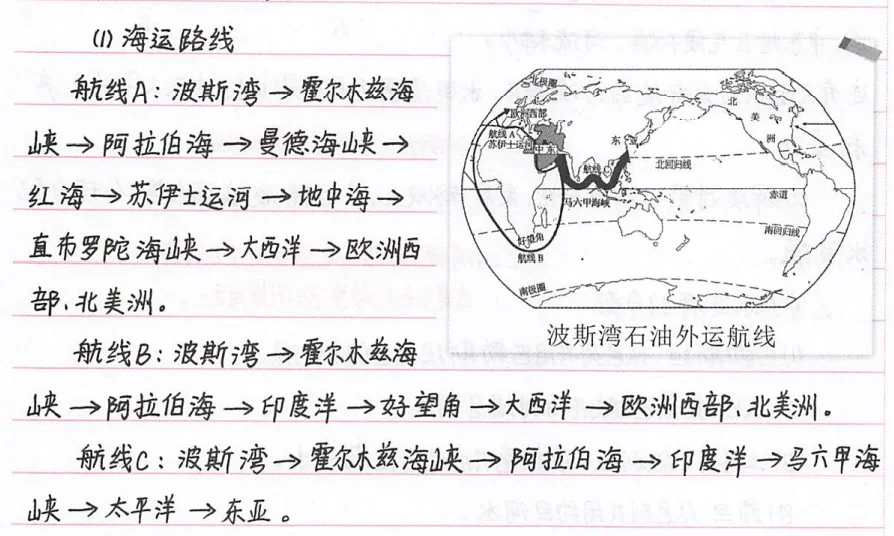 (1) 海运路线
航线A：波斯湾→霍尔木兹海
峡→阿拉伯海→曼德海峡→
红海→苏伊士运河→地中海→
直布罗陀海峡→大西洋→欧洲西
部、北美洲。
航线B：波斯湾→霍尔木兹海
峡→阿拉伯海→印度洋→好望角→大西洋→欧洲西部、北美洲。
航线C：波斯湾→霍尔木兹海峡→阿拉伯海→印度洋→马六甲海
峡→太平洋→东亚。
北极圈
欧洲西部
航线A
苏伊士运河
中东
东亚
航线C
马六甲海峡
好望角
航线B
南极圈
北美洲
北回归线
赤道
南回归线
波斯湾石油外运航线